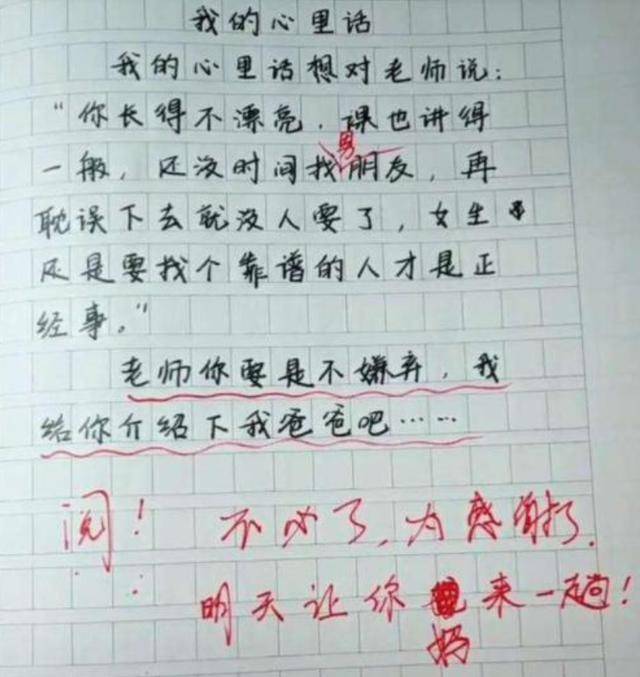 我的心里话
我的心里话想对老师说：
“你长得不漂亮，课也讲得
一般，还没时间找男朋友，再
耽误下去就没人要了，女生
还是要找个靠谱的人才是正
经事。”
老师你要是不嫌弃，我
给你介绍下我爸爸吧……
阅！不必了，感谢了.
明天让你妈来一趟！